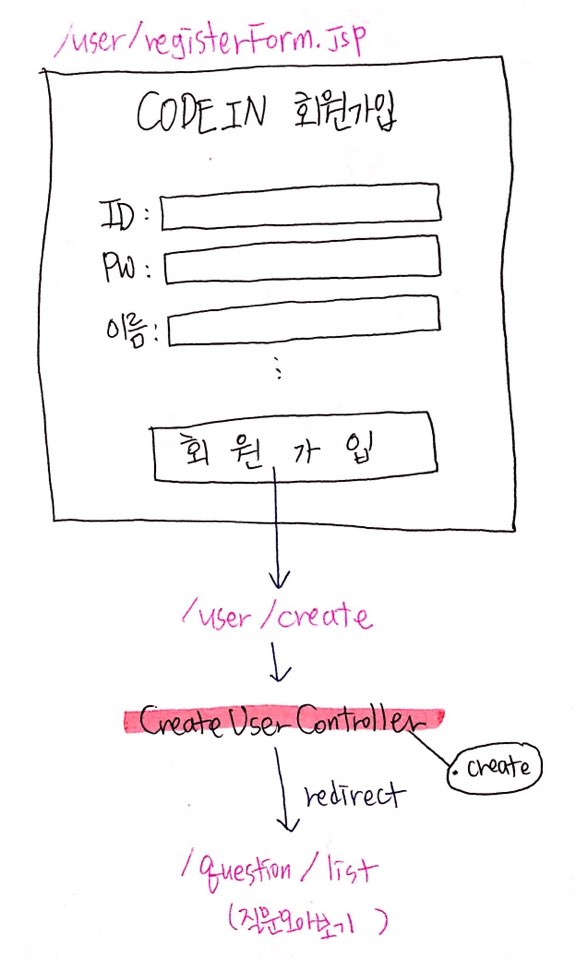 /user/registerForm.jsp
CODEIN 회원가입
ID :
PW :
이름 :
⋮
회 원 가 입
/user/create
Create User Controller
. create
redirect
/question/list
(질문모아보기)